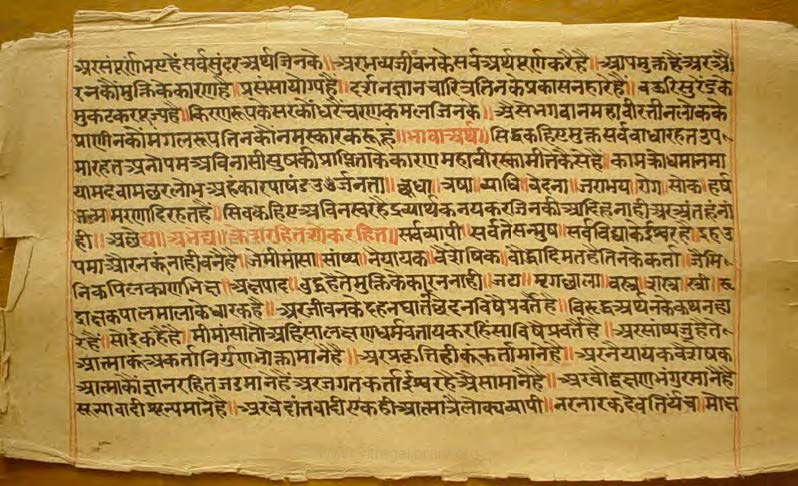 अरसंपूर्णभएहैंसर्वसुंदरअर्थजिनके॥अरभव्यजीवनकेसर्वअर्थपूर्णकरैहै॥आपमुक्तहैंअरऔ
रनकौंमुक्तिकेकारणहै॥प्रसंसायोग्यहैं॥दर्शनज्ञानचारित्रतिनकेप्रकासनहारेहैं॥बहुरिसुरेंद्रके
मुकटकरपूज्यहै॥किरणरूपकेसरकौंधरेंचरणकमलजिनके॥ऐसेभगवानमहावीरतीनलोकके
प्राणीनकौंमंगलरूपतिनकौंनमस्कारकरूहूं॥भावाअर्थ॥सिद्धकहिएमुक्तसर्वबाधारहतउप
मारहतअनोपमअविनासीसुषकीप्राप्तिताकेकारणमहावीरस्वामीतेकैसेहै॥कामक्रोधमानमा
यामदमाछरलोभअहंकारपाषंड॥क्षुधा॥त्रषा॥व्याधि॥वेदना॥जराभय॥रोग॥सोक॥हर्ष
जन्ममरणादिरहतहैं॥सिवकहिएअविनस्वरहैद्रव्यार्थकनयकरजिनकीआदिहनाहीअरअंतहनां
ही॥सर्वव्यापी॥सर्वतेसन्मुष॥सर्वविद्याकेईश्वरहै॥
पमाऔरनकूंनाहीबनैहै॥जैमीमांसा॥सांष्य॥नैयायक॥वैशेषिक॥बौद्धादिमतहैतिनकेकर्ता॥जैमि
निकपिलकाणभिक्ष॥अक्षपाद॥बुद्धहैतेमुक्तिकेकारननाही॥जटा॥मृगछाला॥वस्त्र॥शस्त्र॥स्त्री॥रु
द्राक्षकपालमालाकेधारकहै॥अरजीवनकेदहनघातछेदनविषैप्रवर्तैहै॥विरुद्धअर्थनकेकथनहा
रेहैं॥सोईकहैहैं॥मीमांसातोअहिंसालक्षणधर्मबतायकरहिंसाविषैप्रवर्तैहै॥अरसांष्यजुहैते
आत्माकूंअकर्तानिर्गुणभोक्तामानैहै॥अरप्रकृतिहीकूंकर्तामानैहै॥अरनैयायकवैशेषक
आत्माकौंज्ञानरहितजडमानैहैंअरजगतकर्ताईश्वरहैऐसामानैहै॥अरबौद्धक्षणभंगुरमानैहै
सून्यवादीशून्यमानैहै॥अरवेदांतवादीएकहीआत्मात्रैलोक्यव्यापी॥नरनारकदेवतिर्यच॥मोक्ष